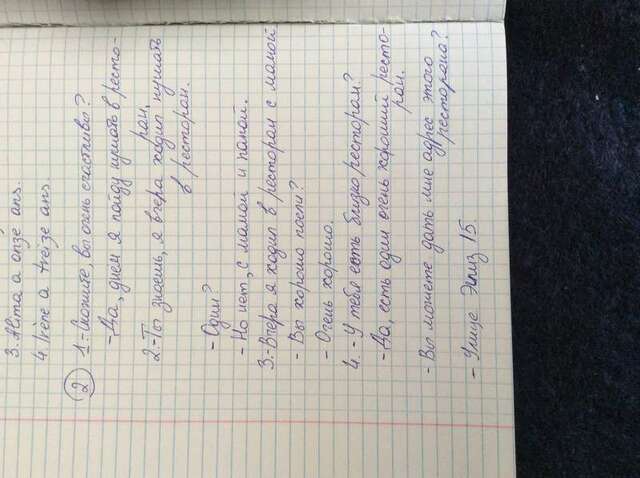 3. Alta a onze ans.
4. Irène a treize ans
② 1. - Скажите, вы очень счастливы?
- Да, днем я пойду кушать в ресто-
ран.
2. - Ты знаешь, я вчера ходил кушать
в ресторан.
- Один?
- Но нет, с мамой и папой.
3. - Вчера я ходил в ресторан с мамой
- Вы хорошо поели?
- Очень хорошо.
4. - У тебя есть близко ресторан?
- Да, есть один очень хороший ресто-
ран.
- Вы можете дать мне адрес этого
ресторана?
- Улице Элиз, 15